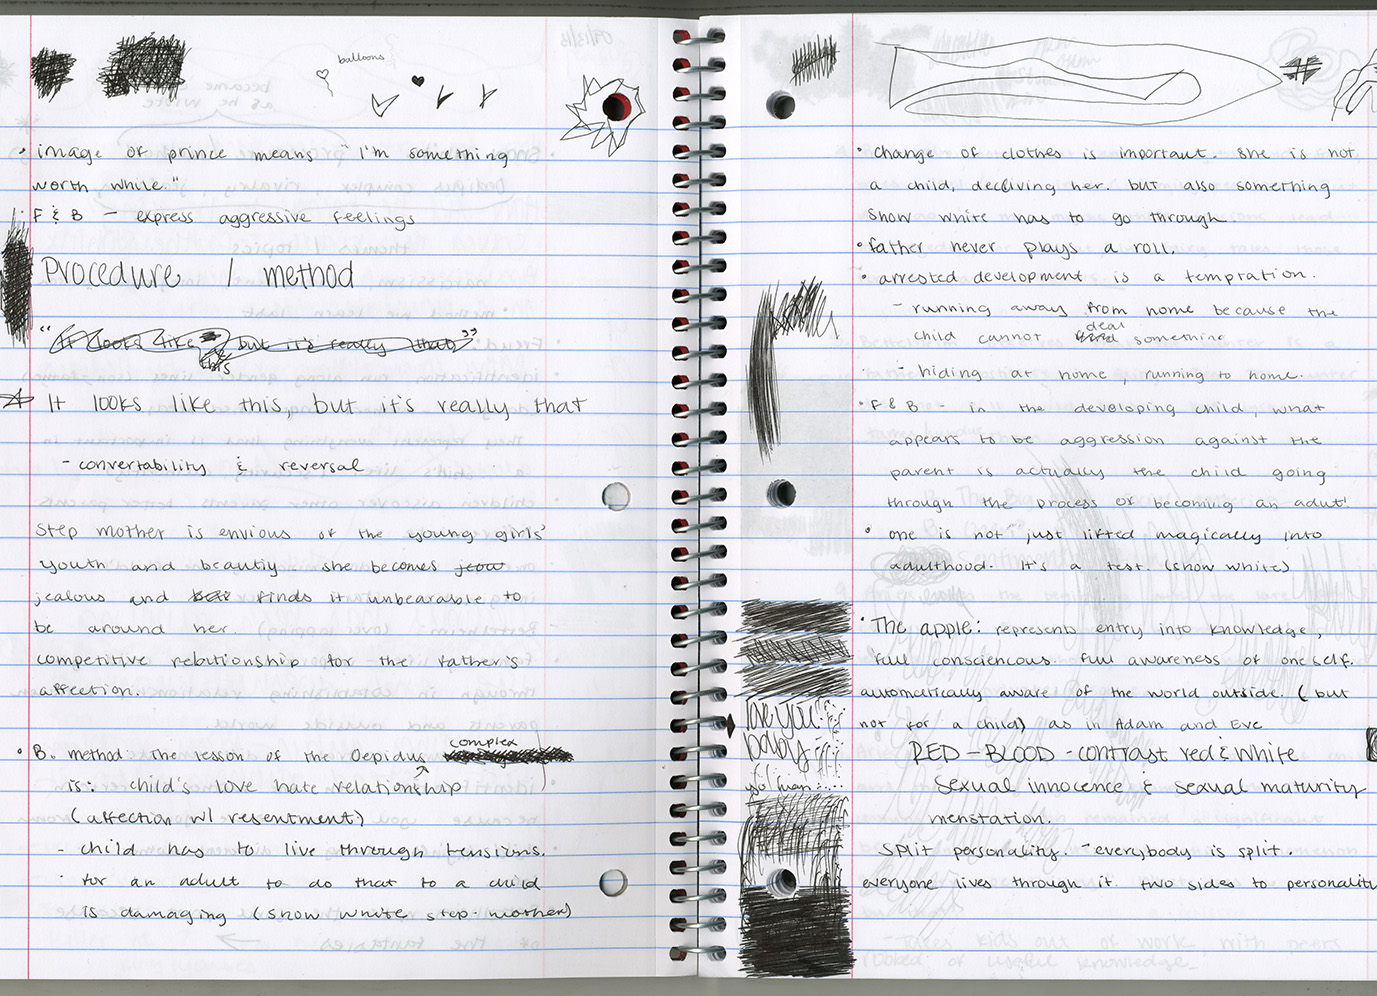 balloons
• image of prince means "I'm something
worth while."
F & B – express aggressive feelings
Procedure / method
"It looks like this but it's really that"
It looks like this, but it's really that
- convertability & reversal
Step mother is envious of the young girls'
youth and beautiy. she becomes
jealous and finds it unbearable to
be around her.
competitive relationship for the father's
affection.
• B. method The lesson of the Oedipus complex
is: child's love hate relationship
(affection w/ resentment)
- child has to live through tensions.
for an adult to do that to a child
is damaging (snow white step-mother)
• change of clothes is important. She is not
a child, decciving her. but also something
Snow white has to go through
• father never plays a roll.
• arrested development is a tempration.
- running away from home because the
child cannot deal something
- hiding at home, running to home.
• F & B - in the developing child, what
appears to be aggression against the
parent is actually the child going
through the process of becoming an adut!
• one is not just lifted magically into
adulthood. It's a test. (snow white)
• The apple: represents entry into knowledge,
full consciencous. full awareness of oneself.
automatically aware of the world outside. (but
not for a child) as in Adam and Eve
love you
baby
RED – BLOOD - contrast red & white
Sexual innocence & sexual maturity
menstation.
Split personality. - everybody is split.
everyone lives through it. two sides to personality
- Takes kids out of work, with peers